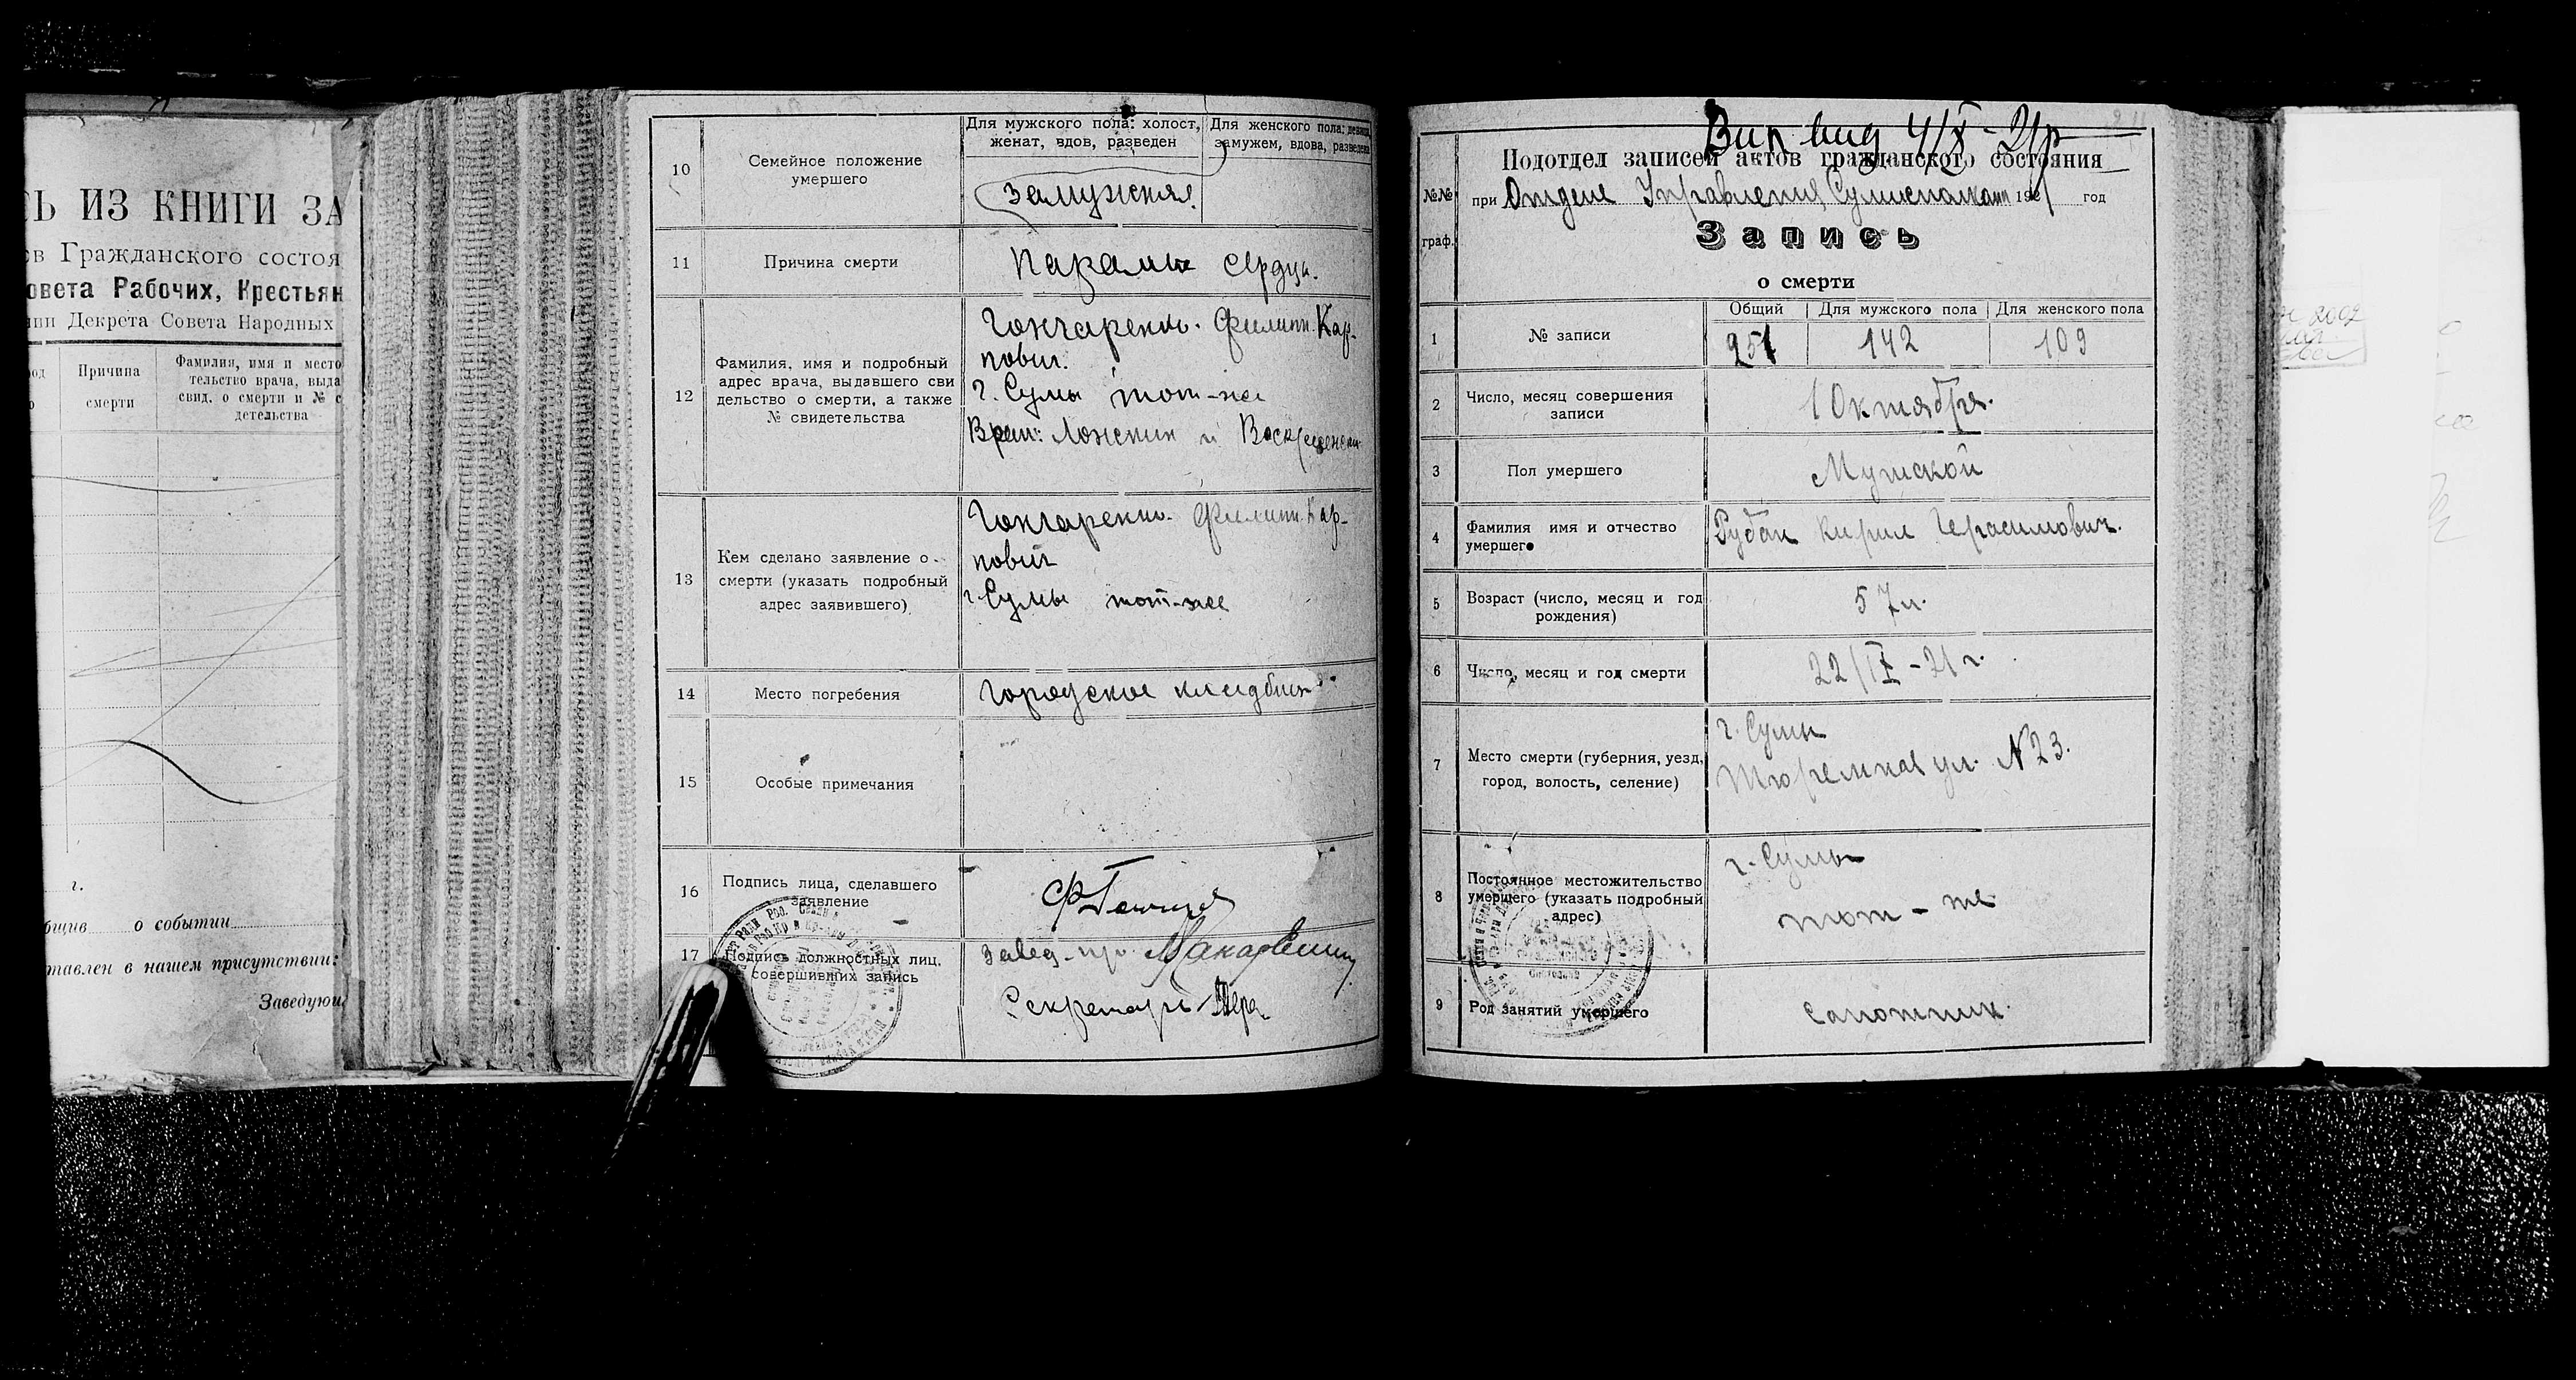 Ь ИЗ КНИГИ ЗА
ов Гражданского состоя
овета Рабочих, Крестьян
нии Декрета Совета Народных
Причина
смерти
Фамилия, имя и место
тельство врача, выда
свид. о смерти и № с
детельства
г.
бщив о событии
тавлен в нашем присутствии:
Заведующ
10
Семейное положение
умершего
Для мужского пола: холост,
женат, вдов, разведен
Для женского пола: девица,
замужем, вдова, разведена
замужняя.
11
Причина смерти
паралич сердца.
12
Фамилия, имя и подробный
адрес врача, выдавшего сви
дельство о смерти, а также
№ свидетельства
Гончаренко. Филипп. Кар-
пович.
г. Сумы тот-же
Врач: Ложкин и
13
Кем сделано заявление о
смерти (указать подробный
адрес заявившего)
Гончаренко. Филипп. Кар-
пович
г. Сумы тот-же
14
Место погребения
Городское кладбище
15
Особые примечания
16
Подпись лица, сделавшего
заявление
17
Подпись должностных лиц,
совершивших запись
завед.
Секретарь
4/X-21р
Подотдел записей актов гражданского состояния
№№
граф.
при Отделе Управления 1921 год
Запись
о смерти
1
№ записи
Общий
Для мужского пола
Для женского пола
251
142
109
2
Число, месяц совершения
записи
1 Октября.
3
Пол умершего
Мужской
4
Фамилия имя и отчество
умершего
Рубан Кирил Герасимович.
5
Возраст (число, месяц и год
рождения)
57 л.
6
Число, месяц и год смерти
22/IX-21 г.
7
Место смерти (губерния, уезд,
город, волость, селение)
г. Сумы
Тюремная ул. N 23.
8
Постоянное местожительство
умершего (указать подробный
адрес)
г. Сумы
тот-же
9
Род занятий умершего
сапожник.